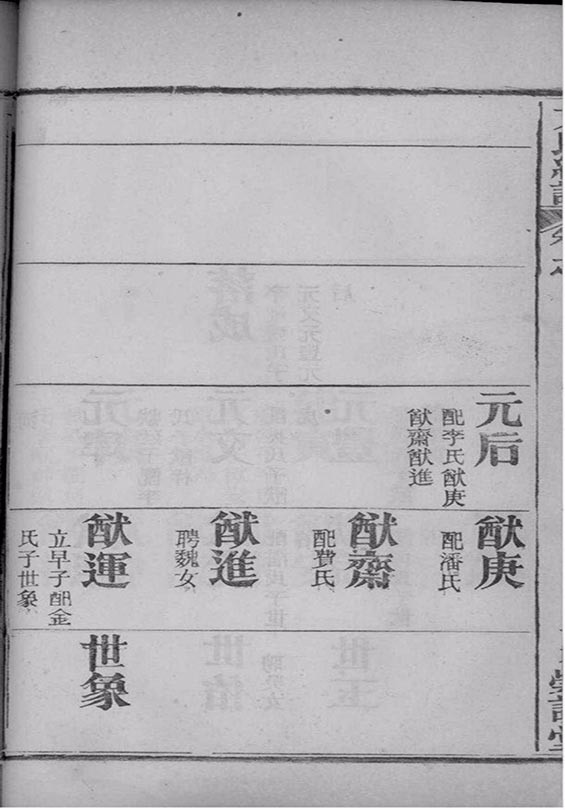 元后
配李氏猷庚
猷齋猷進
猷庚
配潘氏
猷齋
配費氏
猷進
聘魏女
猷運
立早子配金
氏子世象
世象